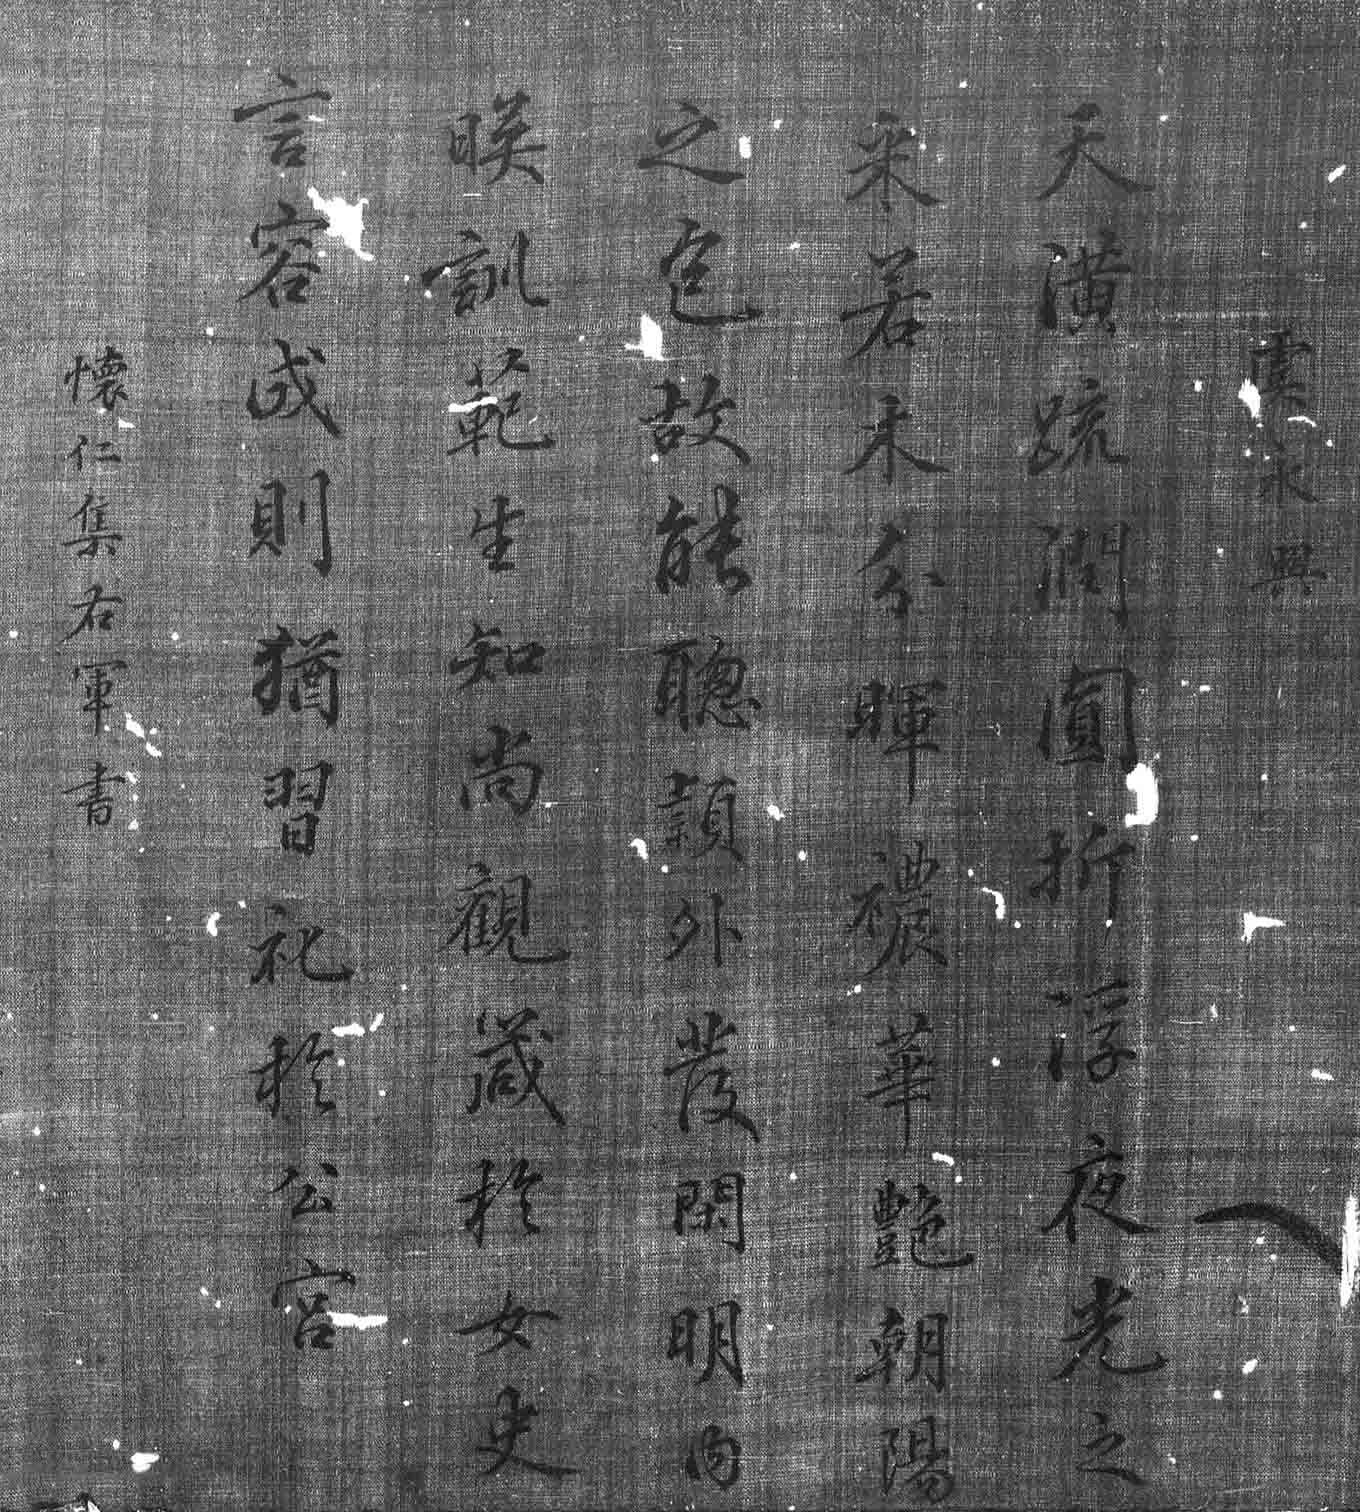 虞永興
天潢疏潤圓折浮夜光之
采若木分暉禯華艷朝陽
之色故能聰穎外發閑明內
暎訓範生知尚觀箴於女史
言容成則猶習礼於公宮
懷仁集右軍書